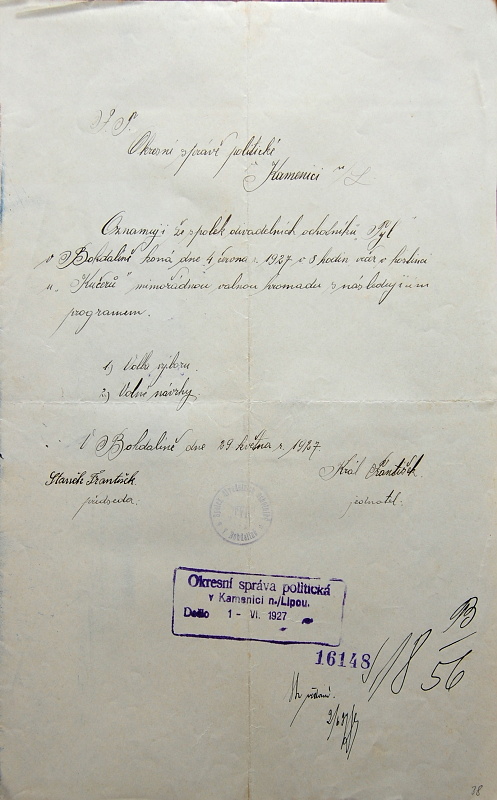 P. T.
Okresní správě politické
v Kamenici n L
Oznamuji že spolek divadelních ochotníků „Tyl“
v Bohdalíně koná dne 4 června r. 1927 v 8 hodin več v hostinci
u „Kučerů“ mimořádnou valnou hromadu s následujícím
programem.
1) Volba výboru.
2) Volné návrhy.
V Bohdalíně dne 29 května r. 1927.
Staněk František
předseda.
Král František
jednatel.
Okresní správa politická
v Kamenici n./Lipou.
Došlo 1 - VI. 1927
16148
18
B
56
38